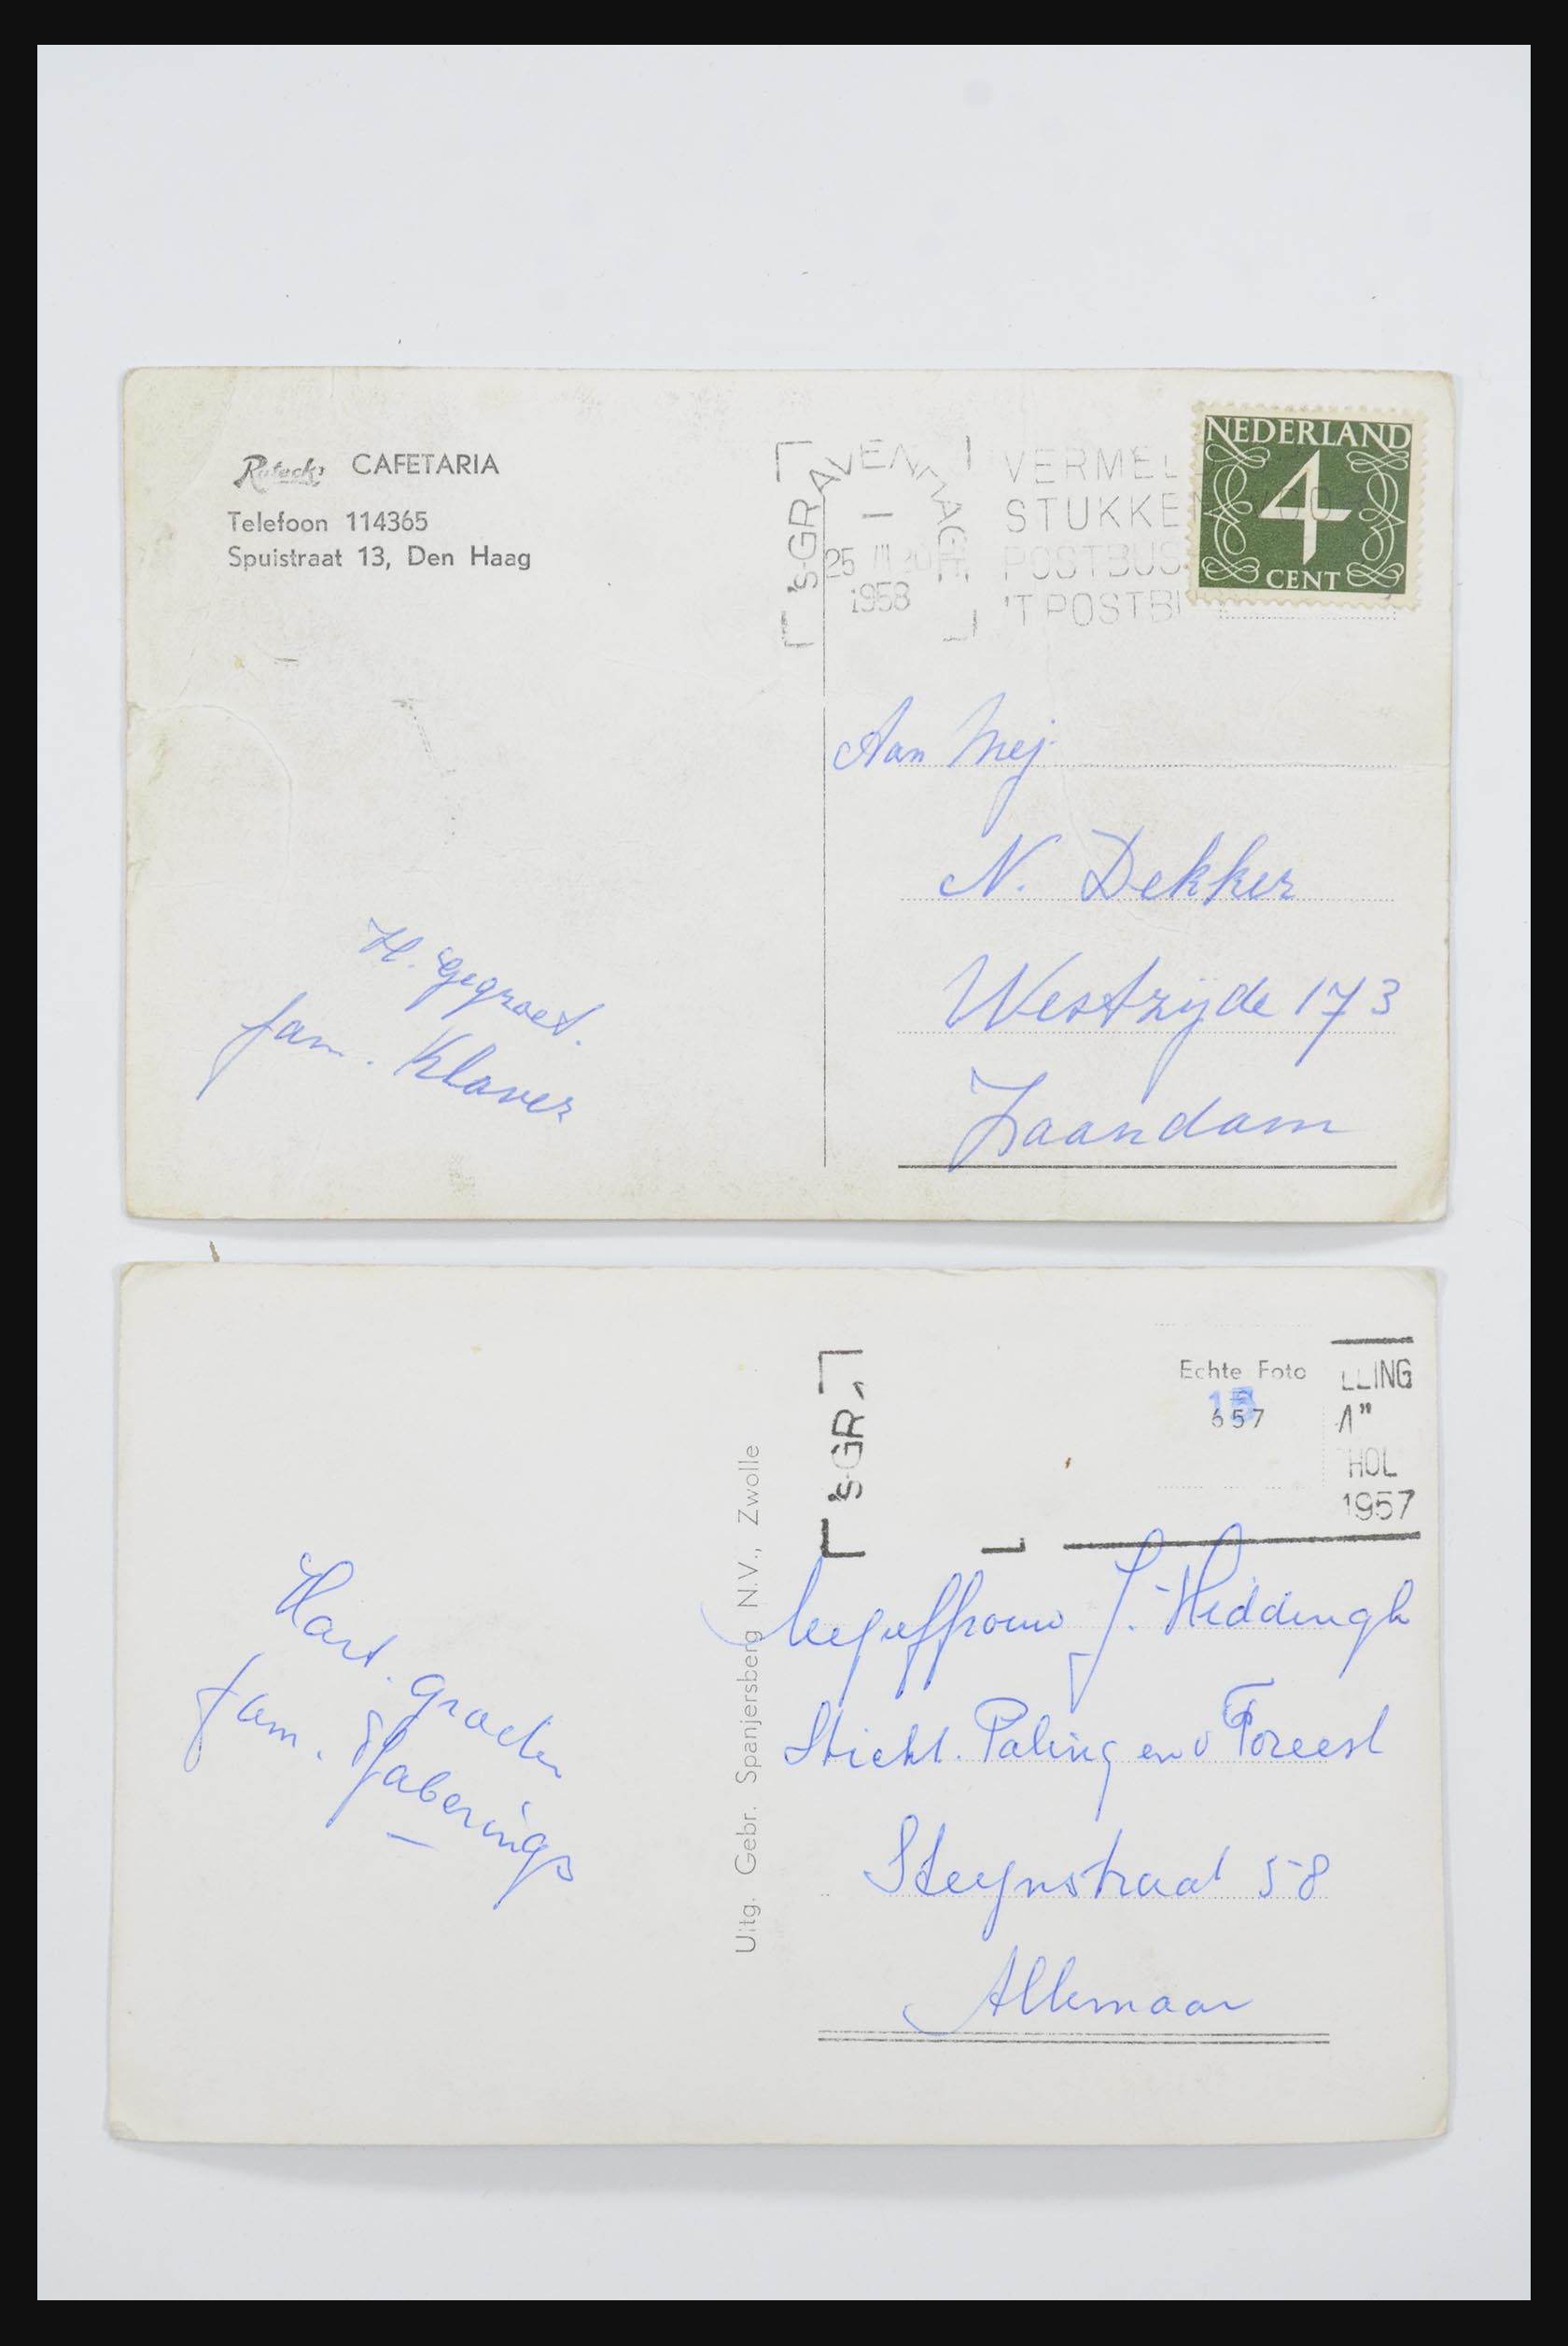 Ruteck's CAFETARIA
Telefoon 114365
Spuistraat 13, Den Haag
's-GRAVENHAGE
25 III 20
1958
VERMEL
STUKKEN VOO
POSTBUS
'T POSTB
NEDERLAND
4
CENT
Aan Mej.
N. Dekker
Westzijde 173
Zaandam
H. gegroet.
fam. Klaver
's-GRA
Echte Foto
657
LLING
HOL
1957
Uitg. Gebr. Spanjersberg N.V., Zwolle
Mejuffrouw J. Hiddingh
Sticht. Paling en v Foreest
Steynstraat 58
Alkmaar
Hart. groeten
fam.